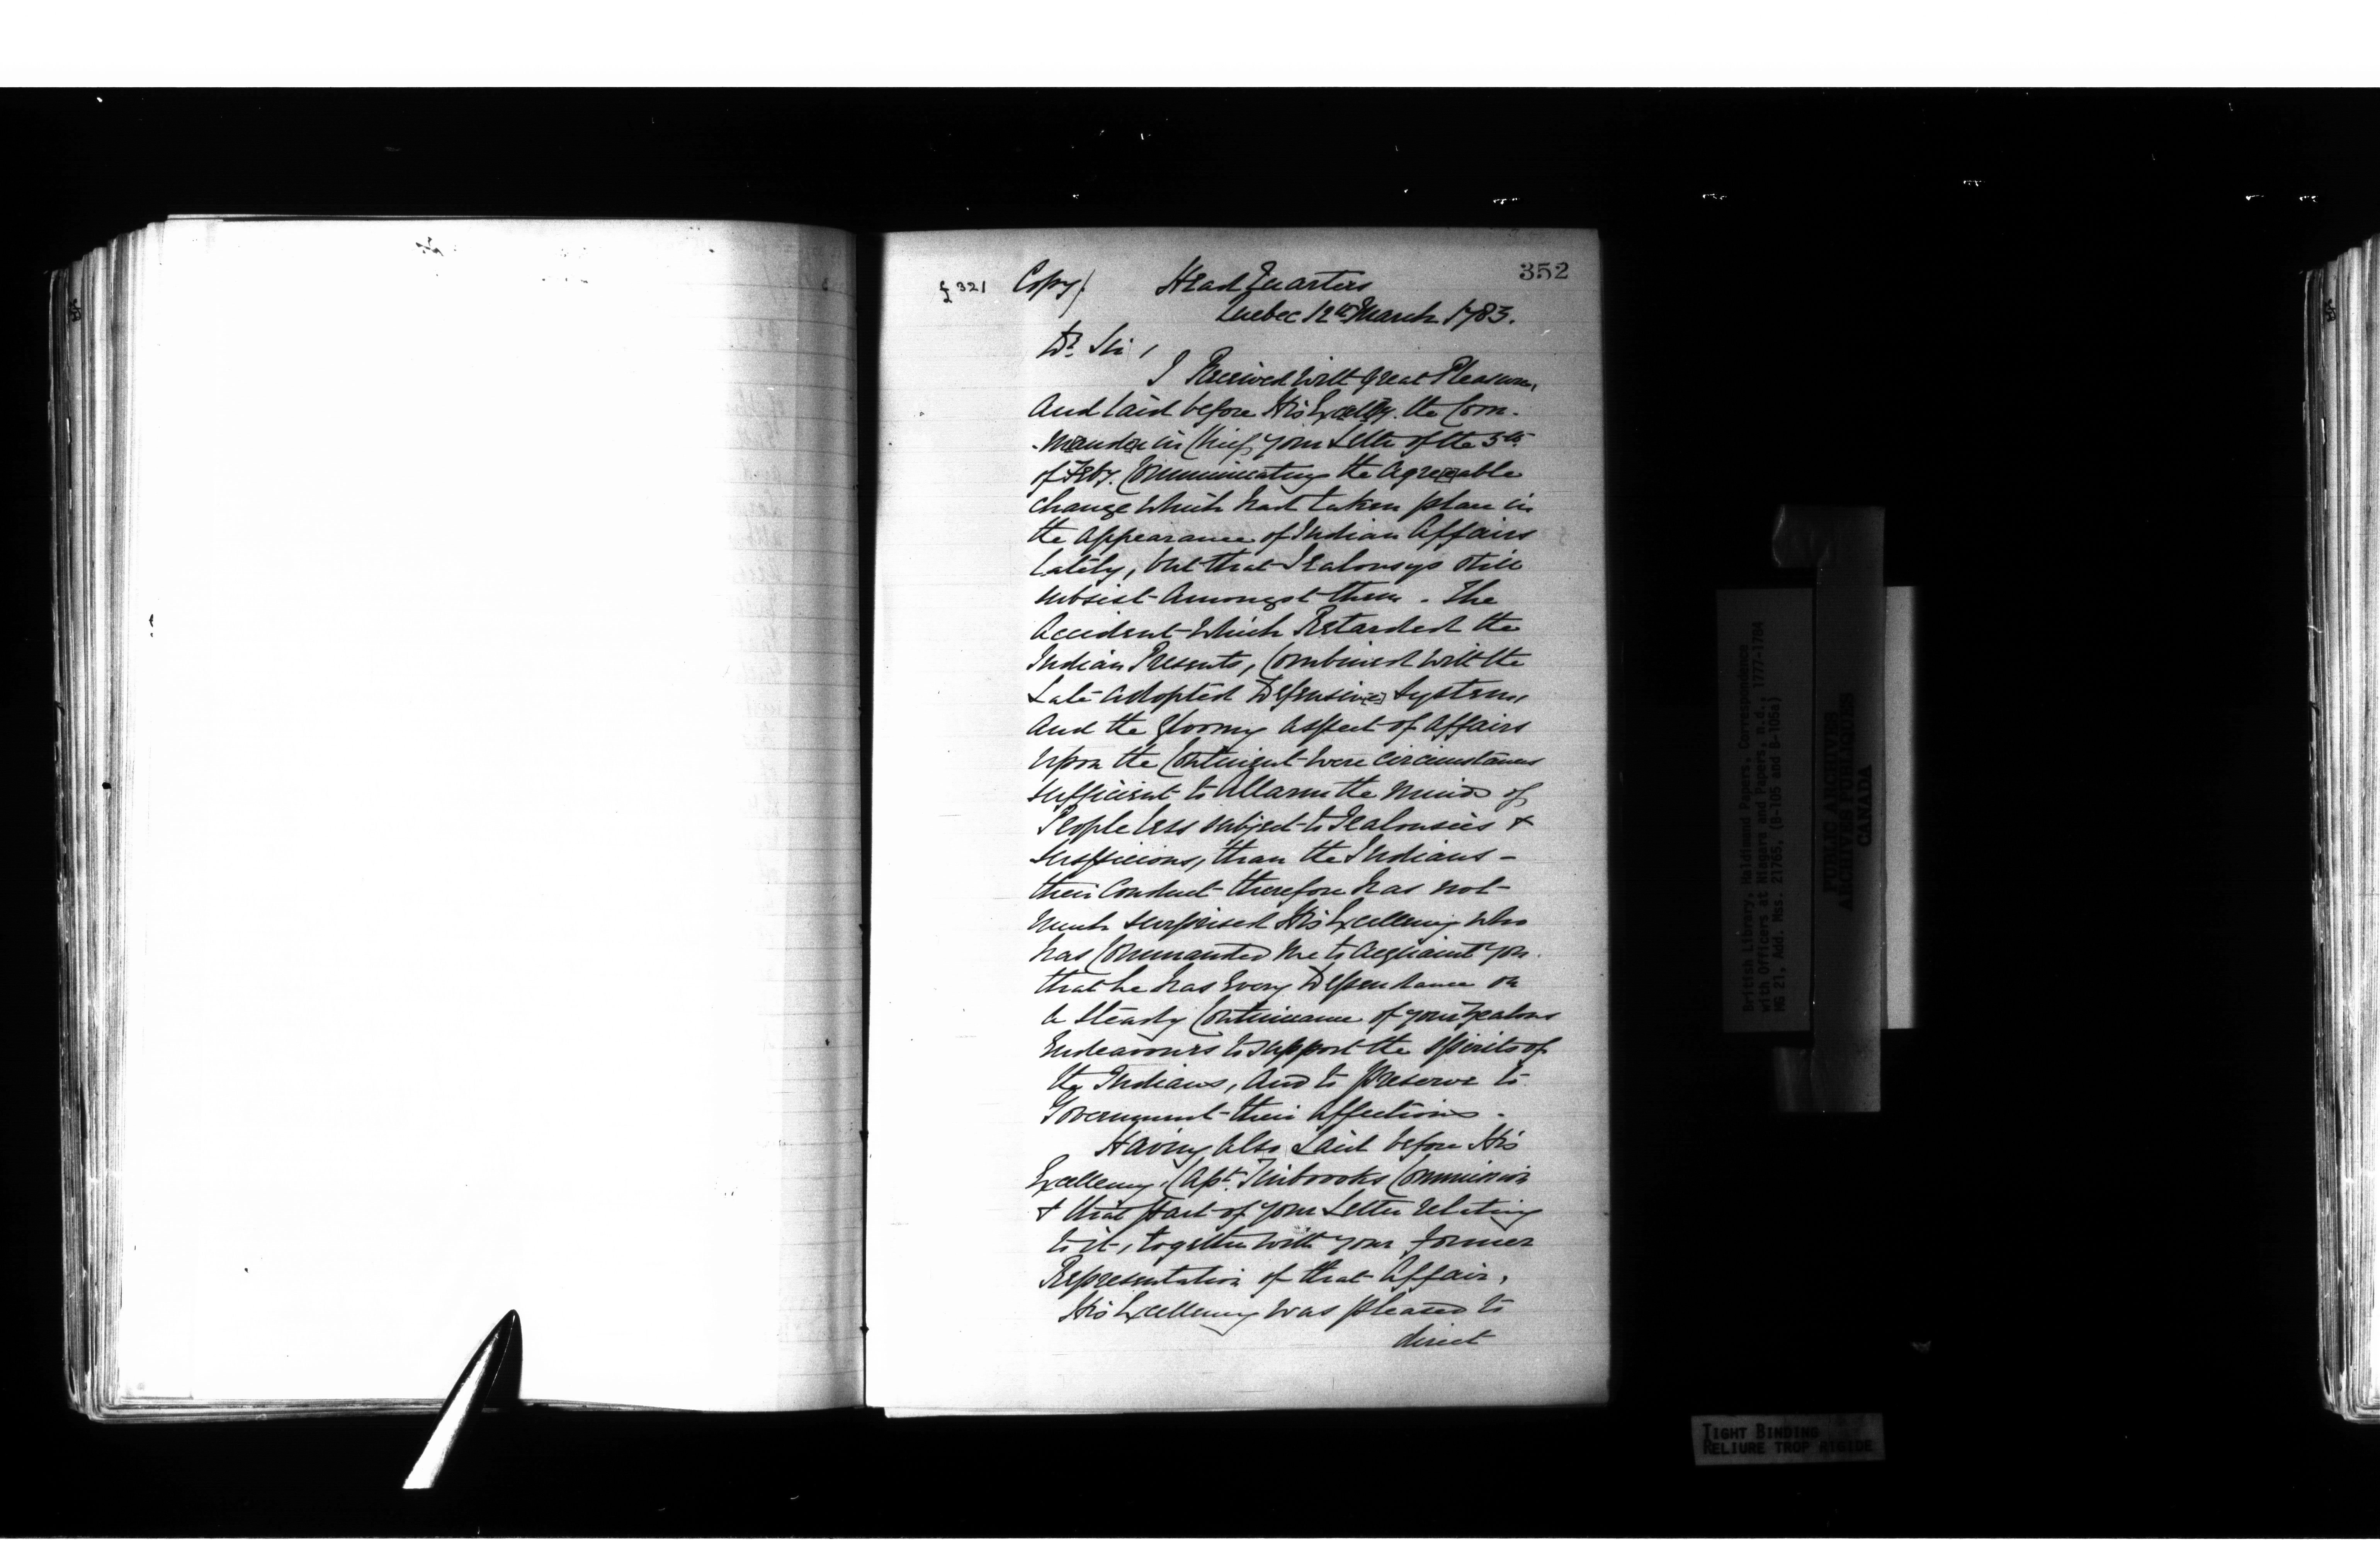 352
f 321 Copy/. Head Quarters
Quebec 12th March 1783.
Dr. Sir,
I Received with great Pleasure,
And laid before His Excellcy. the Com-
-mander in Chief your Letter of the 5th
of Feby. Communicating the Agreeable
change which had taken place in
the Appearance of Indian Affairs
lately, but that Jealousys still
subsist Amongst them. The
Accident which Retarded the
Indian Presents, Combined with the
Late adopted Defensive System,
And the gloomy aspect of Affairs
upon the Continent were circumstances
sufficient to Allarm the minds of
People less subject to Jealousies &
suspicions, than the Indians -
their Conduct therefore has not
much surprised His Excellency who
has Commanded me to Acquaint you
that he has Every Dependance on
a Steady Continuance of your Zealous
Endeavours to support the spirits of
the Indians, And to preserve to
Government their Affections.
Having Also Laid before His
Excellency, Capt. Tinbrooks Commission
& that Part of your Letter relating
to it, together with your former
Representation of that Affair,
His Excellency was pleased to
direct
British Library, Haldimand Papers, Correspondence
with Officers at Niagara and Papers, n.d., 1777-1784
MG 21, Add. Mss. 21765, (B-105 and B-105a)
PUBLIC ARCHIVES
ARCHIVES PUBLIQUES
CANADA
TIGHT BINDING
RELIURE TROP RIGIDE